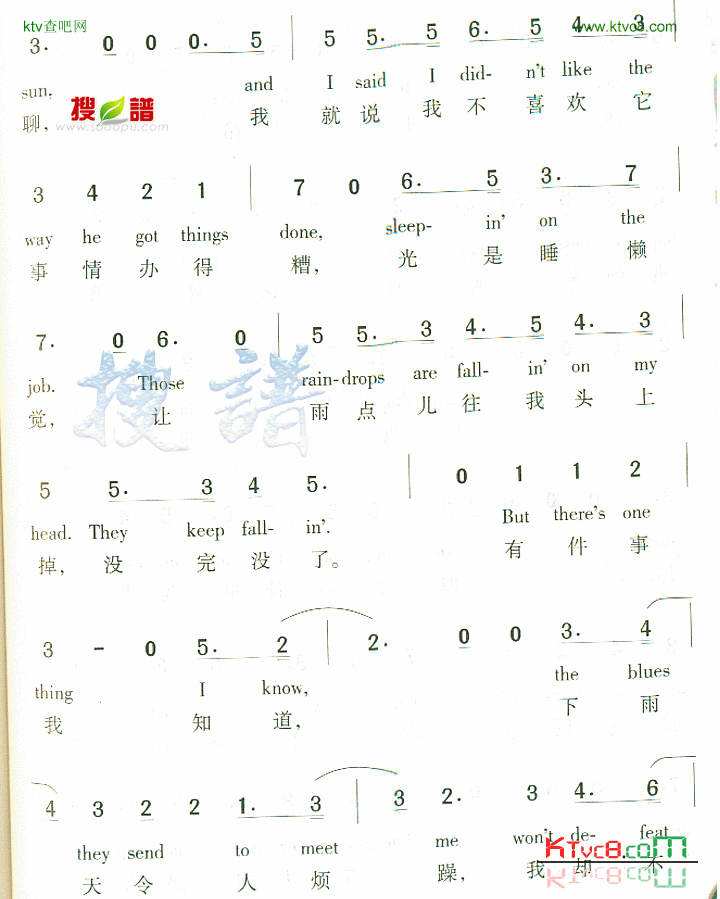 ktv查吧网 www.ktvc8.com
3. 0 0 0. 5 | 5 5. 5 6. 5 4. 3
sun, and I said I did- n't like the
聊, 我 就 说 我 不 喜 欢 它
搜谱 www.sooopu.com
3 4 2 1 | 7 0 6. 5 3. 7 |
way he got things done, sleep- in' on the
事 情 办 得 糟, 光 是 睡 懒
7. 0 6. 0 | 5 5. 3 4. 5 4. 3 |
job. Those rain-drops are fall- in' on my
觉, 让 雨 点 儿 往 我 头 上
搜譜
5 5. 3 4 5. | 0 1 1 2 |
head. They keep fall- in'. But there's one
掉, 没 完 没 了。 有 件 事
3 - 0 5. 2 | 2. 0 0 3. 4 |
thing I know, the blues
我 知 道, 下 雨
4 3 2 2 1. 3 | 3 2. 3 4. 6 |
they send to meet me won't de- feat
天 令 人 烦 躁, 我 却 不
KTvc8.coM